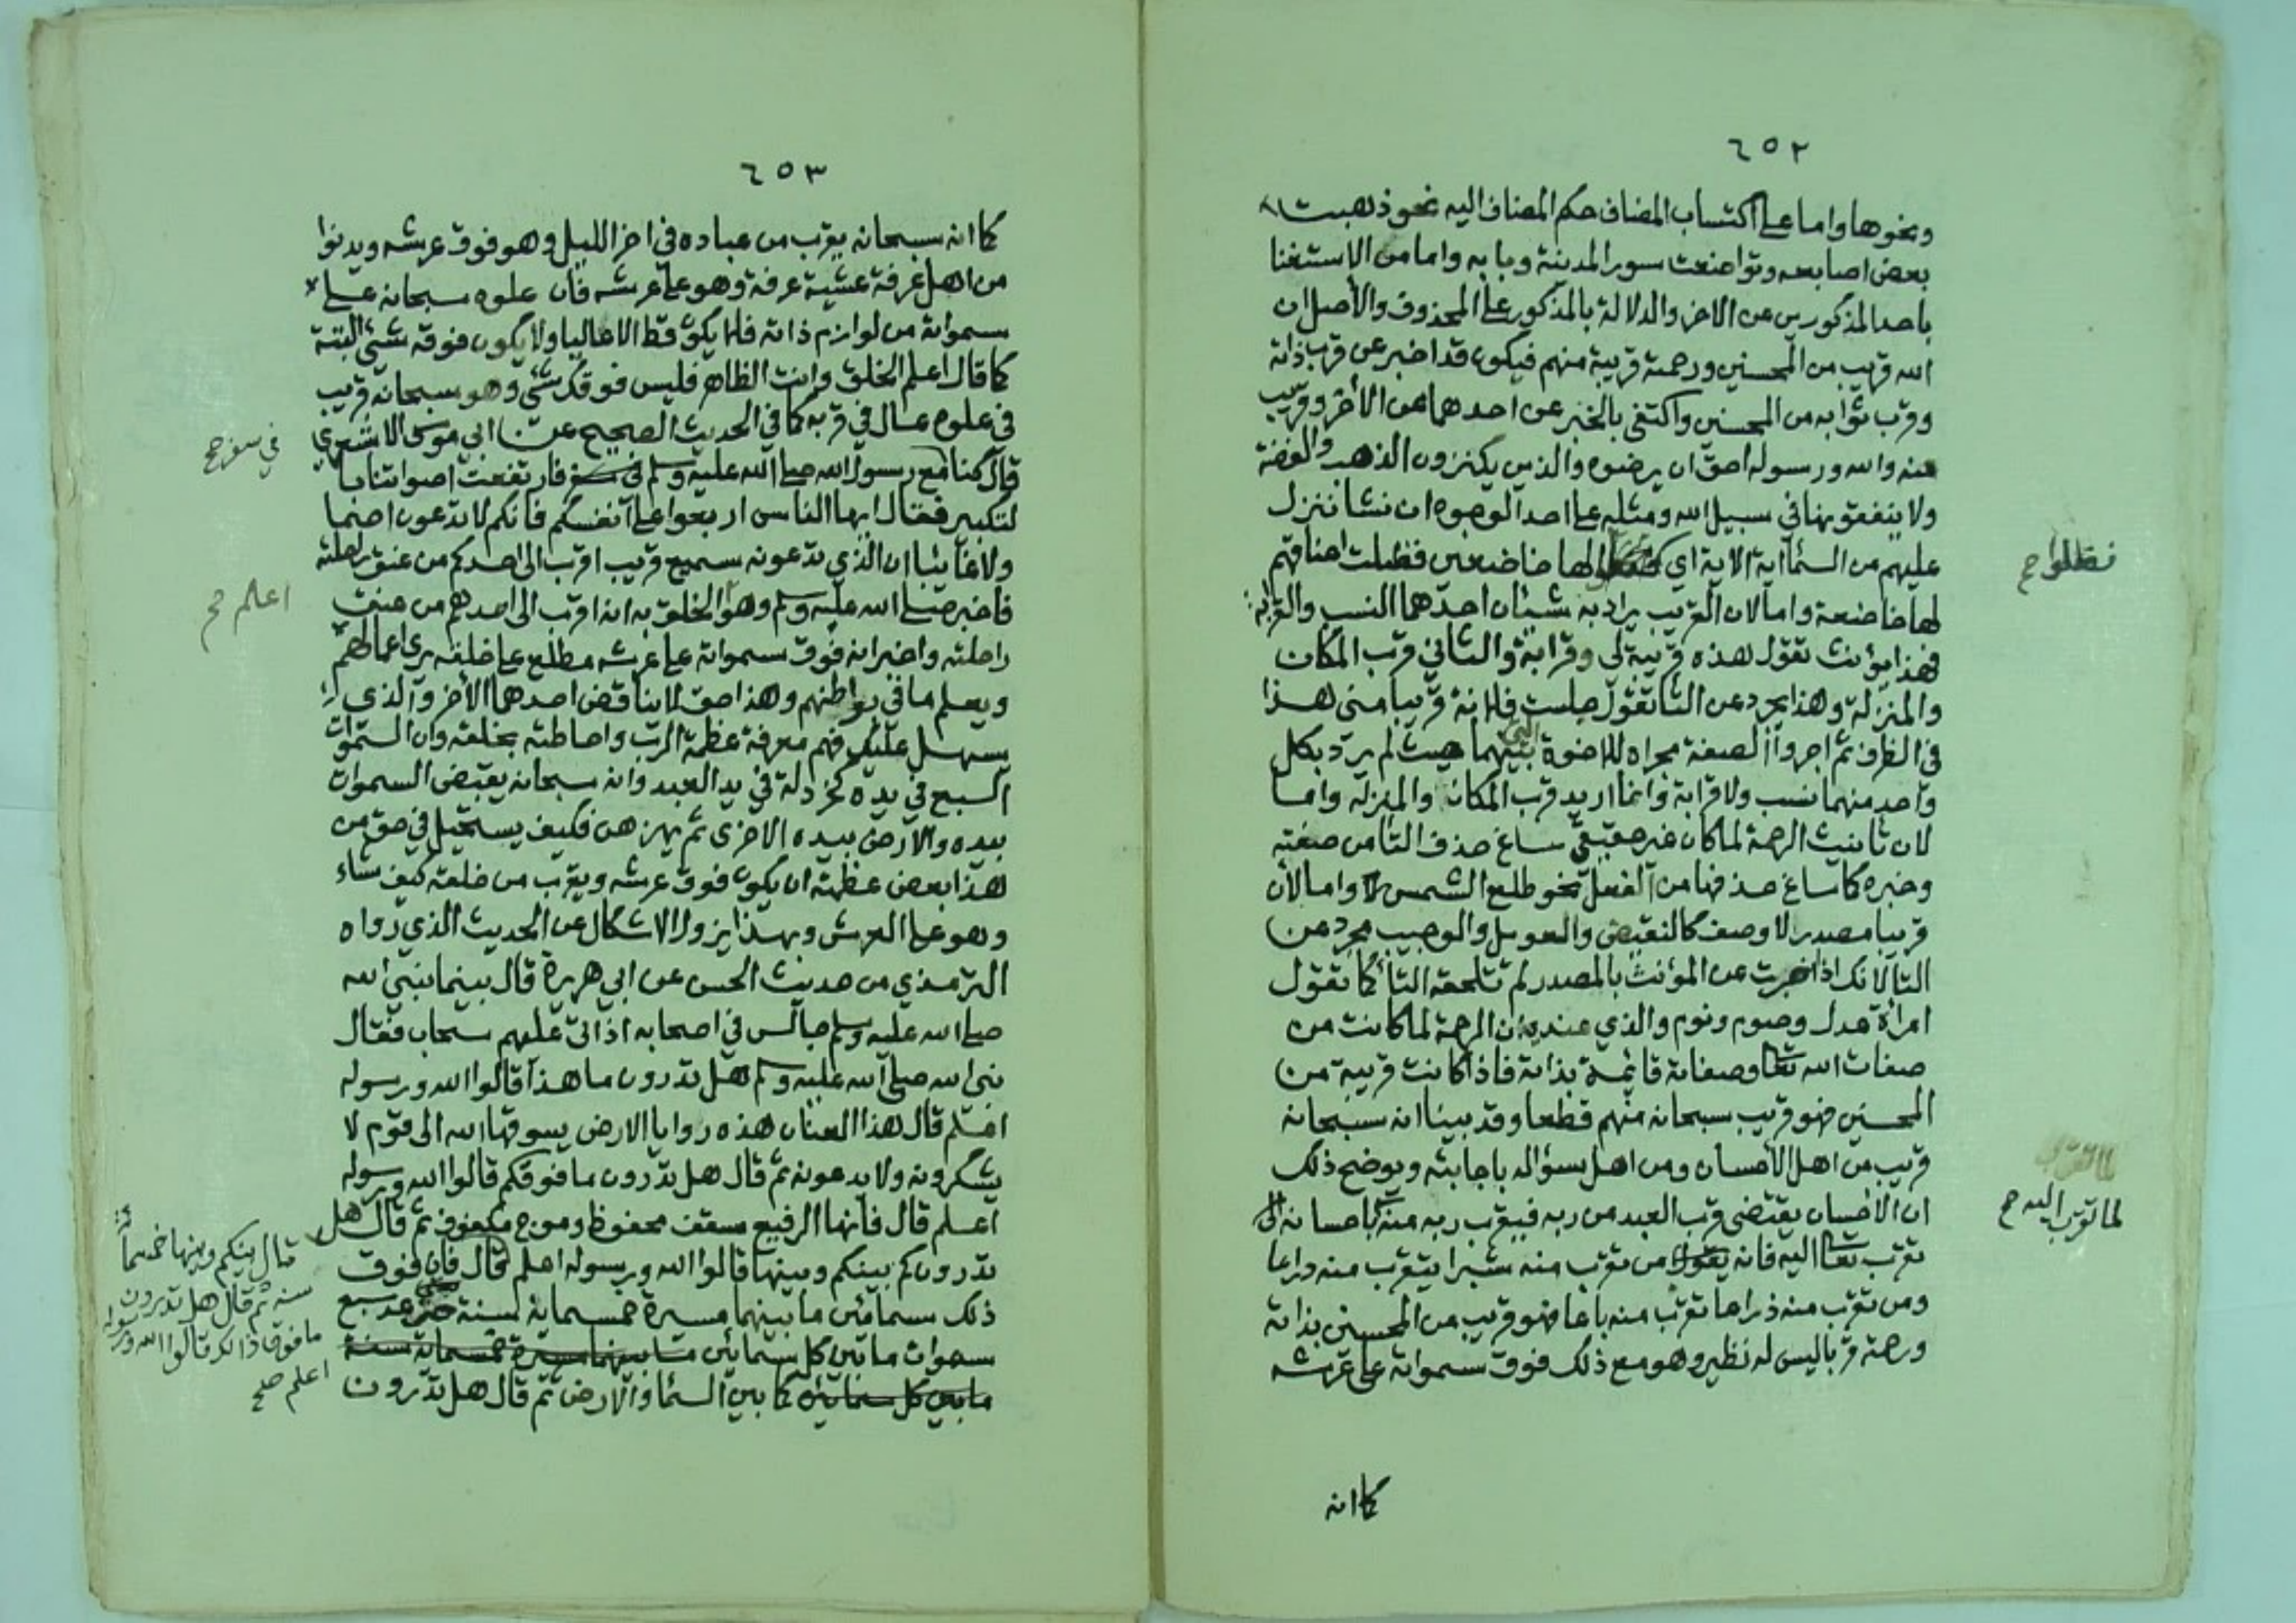 ٦٥٢
ونحوها واما على اكتساب المضاف حكم المضاف اليه نحو ذهبت
بعض اصابعه وتواضعت سور المدينة وبابه واما من الاستغنا
باحد المذكورين عن الاخر والدلالة بالمذكور على المحذوف والأصل ان
الله قريب من المحسنين ورحمته قريبة منهم فيكون قد اخبر عن قرب ذاته
وقرب ثوابه من المحسنين واكتفى بالخبر عن احدهما عن الأخر وقريب
منه والله ورسوله احق ان يرضوه والذين يكنزون الذهب والفضة
ولا ينفقونها في سبيل الله ومثله على احد الوجوه ان نشا ننزل
عليهم من السما اية الاية اي لها خاضعين فظلت اعناقهم
لها خاضعة واما لان القريب يراد به شيئان احدهما النسب والقرابة
فهذا يؤنث تقول هذه قريبة لي وقرابة والثاني قرب المكان
والمنزلة وهذا يجرد عن التا تقول جلست فلانة قريبا مني هذا
في الظرف ثم اجروا الصفة مجراه للاخوة التي بينهما حيث لم يرد بكل
واحد منهما نسب ولا قرابة وانما اريد قرب المكانة والمنزلة واما
لان تانيث الرحمة لما كان غير حقيقي ساغ حذف التا من صفته
وخبره كما ساغ حذفها من الفعل نحو طلع الشمس واما لأن
قريبا مصدر لا وصف كالنقيض والعويل والوجيب مجرد عن
التا لانك اذا اخبرت عن المؤنث بالمصدر لم تلحقه التا كما تقول
امراة عدل وصوم ونوم والذي عندي ان الرحمة لما كانت من
صفات الله تعا وصفاته قائمة بذاته فاذا كانت قريبة من
المحسنين فهو قريب سبحانه منهم قطعا وقد بينا انه سبحانه
قريب من اهل الأحسان ومن اهل سؤاله باجابته ويوضح ذلك
ان الاحسان يقتضي قرب العبد من ربه فيقرب ربه منه باحسانه
تقرب تعا اليه فانه من تقرب منه شبرا يتقرب منه ذراعا
ومن تقرب منه ذراعا تقرب منه باعا فهو قريب من المحسنين بذاته
ورحمته قربا ليس له نظير وهو مع ذلك فوق سمواته على عرشه
كما انه
فظلوا صح
لما تقرب اليه صح
٦٥٣
كما انه سبحانه يقرب من عباده في اخر الليل وهو فوق عرشه ويدنوا
من اهل عرفة عشية عرفة وهو على عرشه فان علوه سبحانه على
سمواته من لوازم ذاته فلا يكون قط الا عاليا ولا يكون فوقه شئ البتة
كما قال اعلم الخلق وانت الظاهر فليس فوقك شئ وهو سبحانه قريب
في علوه عال في قربه كما في الحديث الصحيح عن ابي موسى الاشعري
قال كنا مع رسول الله صلى الله عليه وسلم في سفر فارتفعت اصواتنا با
لتكبير فقال ايها الناس اربعوا على انفسكم فانكم لا تدعون اصما
ولا غائبا ان الذي تدعونه سميع قريب اقرب الى احدكم من عنق راحلته
فاخبر صلى الله عليه وسلم وهو الخلق به انه اقرب الى احدهم من عنق
راحلته واخبر انه فوق سمواته على عرشه مطلع على خلقه يرى اعمالهم
ويعلم ما في بواطنهم وهذا حق لا يناقض احدهما الأخر والذي
يسهل عليك فهم معرفة عظمة الرب واحاطته بخلقه وان السموات
السبع في يده كخردلة في يد العبد وانه سبحانه يقبض السموات
بيده والارض بيده الاخرى ثم يهزهن فكيف يستحيل في حق من
هذا بعض عظمته ان يكون فوق عرشه ويقرب من خلقه كيف شاء
وهو على العرش وبهذا يزول الاشكال عن الحديث الذي رواه
الترمذي من حديث الحسن عن ابي هريرة قال بينما نبي الله
صلى الله عليه وسلم جالس في اصحابه اذ اتى عليهم سحاب فقال
نبي الله صلى الله عليه وسلم هل تدرون ما هذا قالوا الله ورسوله
اعلم قال هذا العنان هذه روايا الارض يسوقها الله الى قوم لا
يشكرونه ولا يدعونه ثم قال هل تدرون ما فوقكم قالوا الله ورسوله
اعلم قال فانها الرفيع سقف محفوظ وموج مكفوف ثم قال هل
تدرون كم بينكم وبينها قالوا الله ورسوله اعلم قال فان فوق
ذلك سمائين ما بينهما مسيرة خمسماية سنة حتى عد سبع
سموات ما بين كل سمائين ما بينهما مسيرة خمسماية سنة
ما بين كل سمائين كما بين السما والارض ثم قال هل تدرون
في سفر صح
اعلم صح
قال بينكم وبينها خمسمائة
سنه ثم قال هل تدرون
ما فوق ذالك قالوا الله ورسوله
اعلم صح